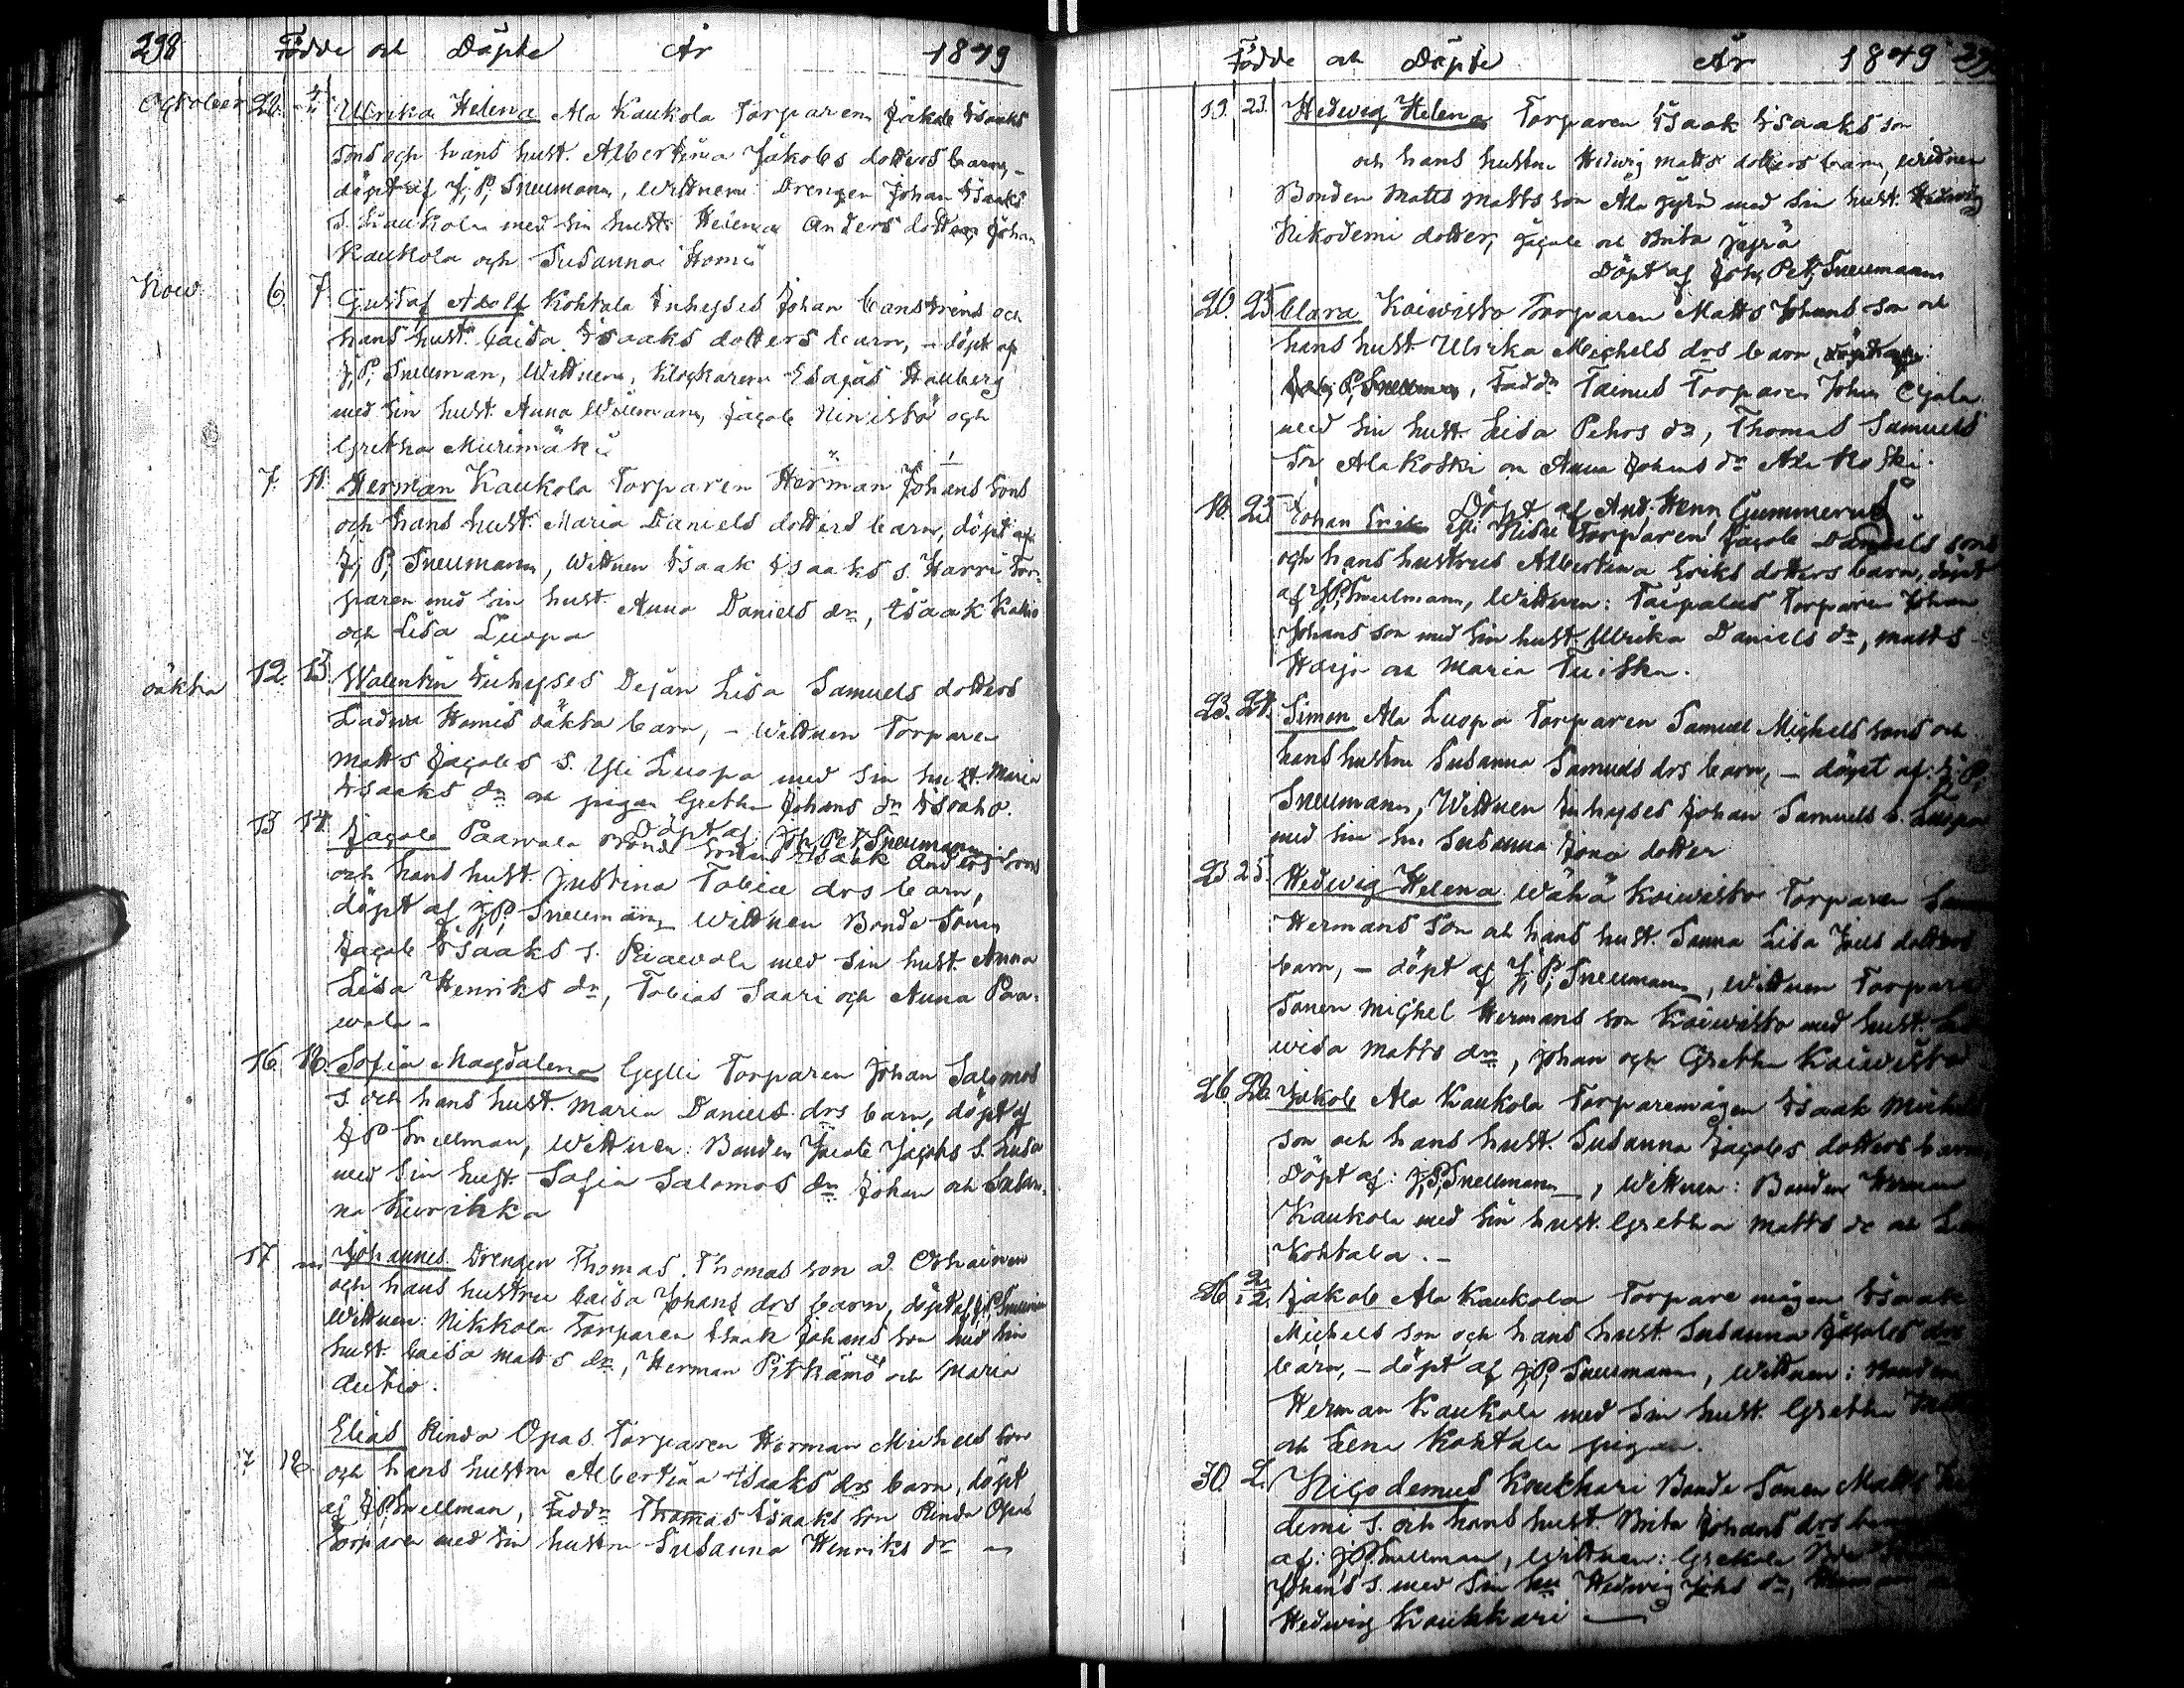 298 Födde och Döpte År 1849
October 26. Ulrika Helena Ala Kaukola Torparen Isaaks
sons och hans hust. Albertina Jakobs dotters barn, -
döpt af J. P. Snellmann, Wittnen: Drengen Johan Isaaks
S. Kaukola med sin hust. Helena Anders dotter, Johan
Kaukola och Susanna Homi
Now 6 7 Gustaf Adolf Kohtala Inhyses Johan Canstréns och
hans hust. Caisa Isaaks dotters barn, - döpt af
J. P. Snellman, Wittnen, Klockaren Esajas Hallberg
med sin hust. Anna Willmann, Jacob Ninistö och
Gretha Murimäki
7. 11. Herman Kaukola Torparen Herman Johans sons
och hans hust. Maria Daniels dotters barn, döpt af
J. P. Snellmann, Wittnen Isaak Isaaks s. Harri Tor-
paren med sin hust. Anna Daniels dr, Isaak
och Lisa Luopa
oäkta 12. 13. Walentin Inhyses Dejan Lisa Samuels dotters
Ladwa Homis oäkta barn, - Wittnen Torparen
Matts Jacobs S. Yli Luopa med sin hust. Maria
Isaaks dr och pigan Gretha Johans dr Isoaho.
Döpt af Joh. Pet. Snellmann
13 14. Jacob Paawola Bonde Sonens Isaak Anders sons
och hans hust. Justina Tobiæ drs barn,
döpt af J. P. Snellmann, Wittnen Bonde Sonen
Jacob Isaaks s. Paawola med sin hust. Anna
Lisa Henriks dr, Tobias Saari och Anna Paa-
wola -
16. 18. Sofia Magdalena Gylli Torparen Johan Salomos
s. och hans hust. Maria Daniels drs barn, döpt af
J P Snellman, Wittnen: Bonden Jacob Jacobs S. Luopa
med sin hust. Sofia Salomos dr Johan och Susan-
na Kurikka
17 Johannes Drengen Thomas Thomas son
och hans hustru Caisa Johans drs barn, döpt af J. P. Snellman
Wittnen: Nikkola Torparen Isaak Johans son med sin
hust. Caisa Matts dr, Herman Pitkämö och Maria
Autio.
17 18. Elias Rinda Opas Torparen Herman Michels son
och hans hustru Albertina Isaaks drs barn, döpt
af J. P. Snellman, Faddr Thomas Isaaks son Rinda Opas
Torparen med sin hustru Susanna Henriks dr -
Födde och Döpte År 1849
19. 23. Hedwig Helena Torparen Isaak Isaaks son
och hans hustru Hedwig Matts dotters barn, Wittnen
Bonden Matts Matts son Ala Jyrä med sin hust. Hedwig
Nikodemi dotter, Jacob och Brita Jyrä
Döpt af Joh. Pet. Snellmann
20. 25 Clara Koiwisto Torparen Matts Johans son och
hans hust. Ulrika Michels drs barn, döpt af
Joh. P. Snellman, Faddr Tainus Torparen Johan
med sin hust. Lisa Pehrs dr, Thomas Samuels
son Ala Koski och Anna Johans dr Ala Koski.
Döpt af And. Henr. Gummerus
18. 23 Johan Erik Yli Torparen Jacob Daniels sons
och hans hustrus Albertina Eriks dotters barn, döpt
af J. P. Snellmann, Wittnen: Taipalus Torparen Johan
Johans son med sin hust. Ulrika Daniels dr, Matts
Harju och Maria Tuiska.
23. 24. Simon Ala Luopa Torparen Samuel Michels sons och
hans hustru Susanna Samuels drs barn, - döpt af: J. P.
Snellmann, Wittnen Inhyses Johan Samuels s. Luopa
med sin hu. Susanna Jona dotter
23 25. Hedwig Helena Wähä Koiwisto Torparen
Hermans son och hans hust. Sanna Lisa dotters
barn, - döpt af J. P. Snellmann, Wittnen Torpare
Sonen Michel Hermans son Koiwisto med hust.
wisa Matts dr, Johan och Gretha Koiwisto
26. 28. Jakob Ala Kaukola Torparemågen Isaak Michels
son och hans hust. Susanna Jacobs dotters barn
Döpt af: J. P. Snellmann, Wittnen: Bonden Herman
Kaukola med sin hust. Gretha Matts dr och
Kohtala. -
26 Jakob Ala Kaukola Torpare mågen Isaak
Michels son och hans hust. Susanna Jacobs drs
barn, - döpt af J. P. Snellmann, Wittnen: Bonden
Herman Kaukola med sin hust. Gretha
och Lena Kohtala pigan.
30 2. Nicodemus Koukkari Bonde Sonen Matts
demi s. och hans hust. Brita Johans drs barn
af: J. P. Snellman, Wittnen:
Johans s. med sin hu Hedwig
Hedwig Koukkari -